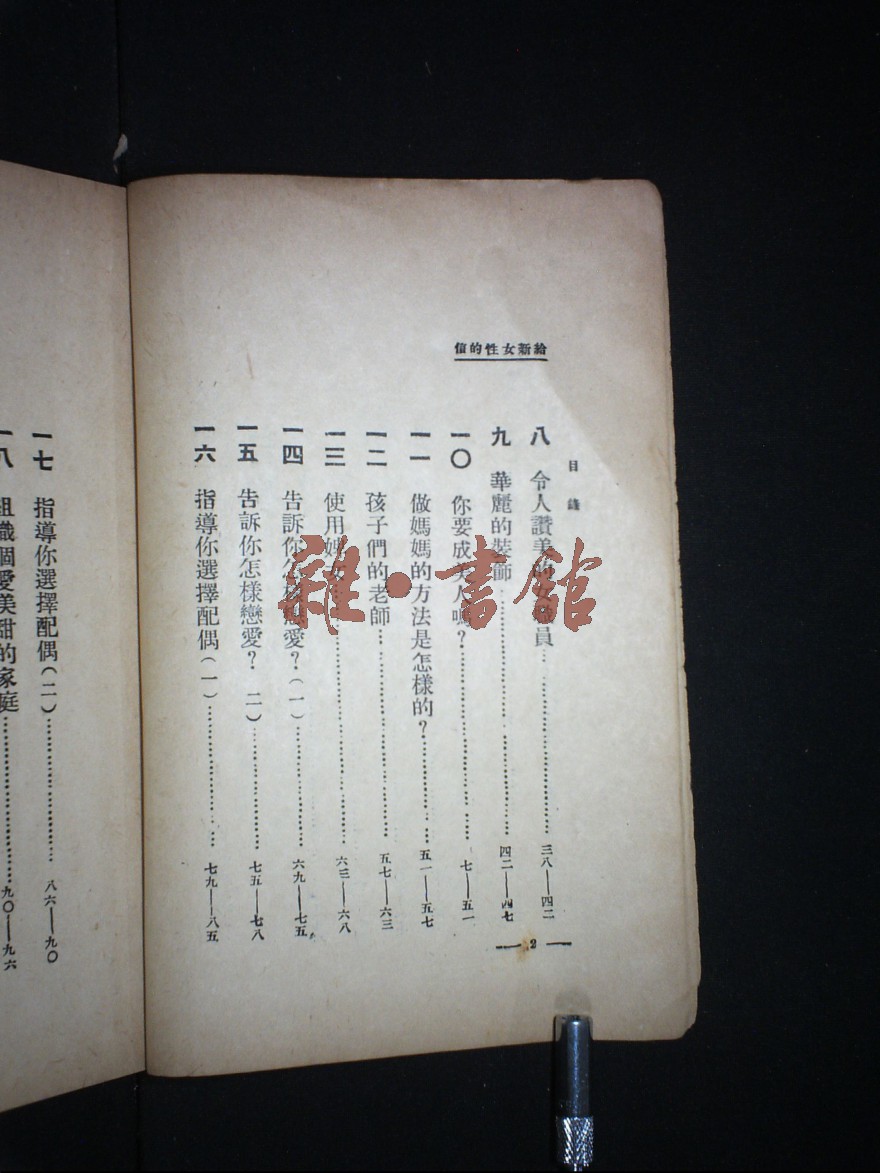 給新女性的信
目錄
八 令人讚美 員……三八——四二
九 華麗的裝飾……四二——四七
一〇 你要成 人嗎?……七——五一
一一 做媽媽的方法是怎樣的?……五一——五七
一二 孩子們的老師……五七——六三
一三 使用 ……六三——六八
一四 告訴你怎樣戀愛?(一)……六九——七五
一五 告訴你怎樣戀愛? 二)……七五——七八
一六 指導你選擇配偶(一)……七九——八五
— 2 —
一七 指導你選擇配偶(二)……八六——九〇
一八 組織個愛美甜的家庭……九〇——九六
雜·書館